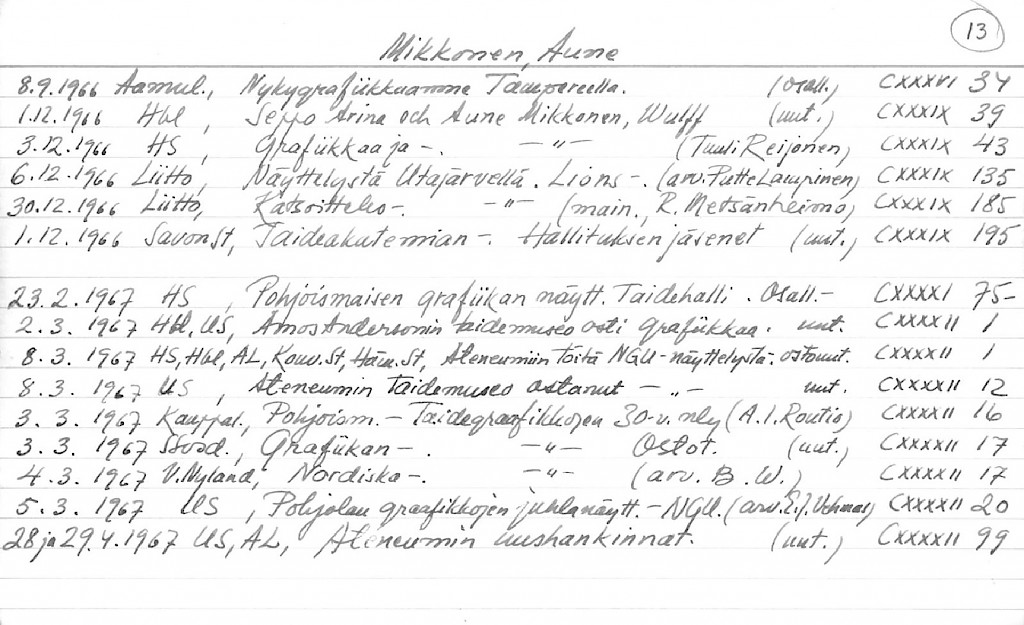 13
Mikkonen, Aune
8.9.1966 Aamul., Nykygrafiikkaamme Tampereella. (osall.) CXXXVI 34
1.12.1966 Hbl, Seppo Ärinä och Aune Mikkonen, Wulff (uut.) CXXXIX 39
3.12.1966 HS, Grafiikkaa ja -. -"- (Tuuli Reijonen) CXXXIX 43
6.12.1966 Liitto, Näyttelystä Utajärvellä. Lions -. (arv. Putte Lampinen) CXXXIX 135
30.12.1966 Liitto, Katsoitteko -. -"- (main., R. Metsänheimo) CXXXIX 185
1.12.1966 Savon St, Taideakatemian -. Hallituksen jäsenet (uut.) CXXXIX 195
23.2.1967 HS, Pohjoismaisen grafiikan näytt. Taidehalli. Osall. - CXXXXI 75-
2.3.1967 Hbl, US, Amos Andersonin taidemuseo osti grafiikkaa. uut. CXXXXII 1
8.3.1967 HS, Hbl, AL, Kouv.St, Häm.St, Ateneumiin töitä NGU-näyttelystä. ostanut. CXXXXII 1
8.3.1967 US, Ateneumin taidemuseo ostanut -"- uut. CXXXXII 12
3.3.1967 Kauppal., Pohjoism. - Taidegraafikkojen 30-v. nly (A.I. Routio) CXXXXII 16
3.3.1967 Ssosd., Grafiikan -. -"- Ostot. (uut.) CXXXXII 17
4.3.1967 V. Nyland, Nordiska -. -"- (arv. B.W.) CXXXXII 17
5.3.1967 US, Pohjolan graafikkojen juhlanäytt. - NGU. (arv. E.J. Vehmas) CXXXXII 20
28 ja 29.4.1967 US, AL, Ateneumin uushankinnat. (uut.) CXXXXII 99